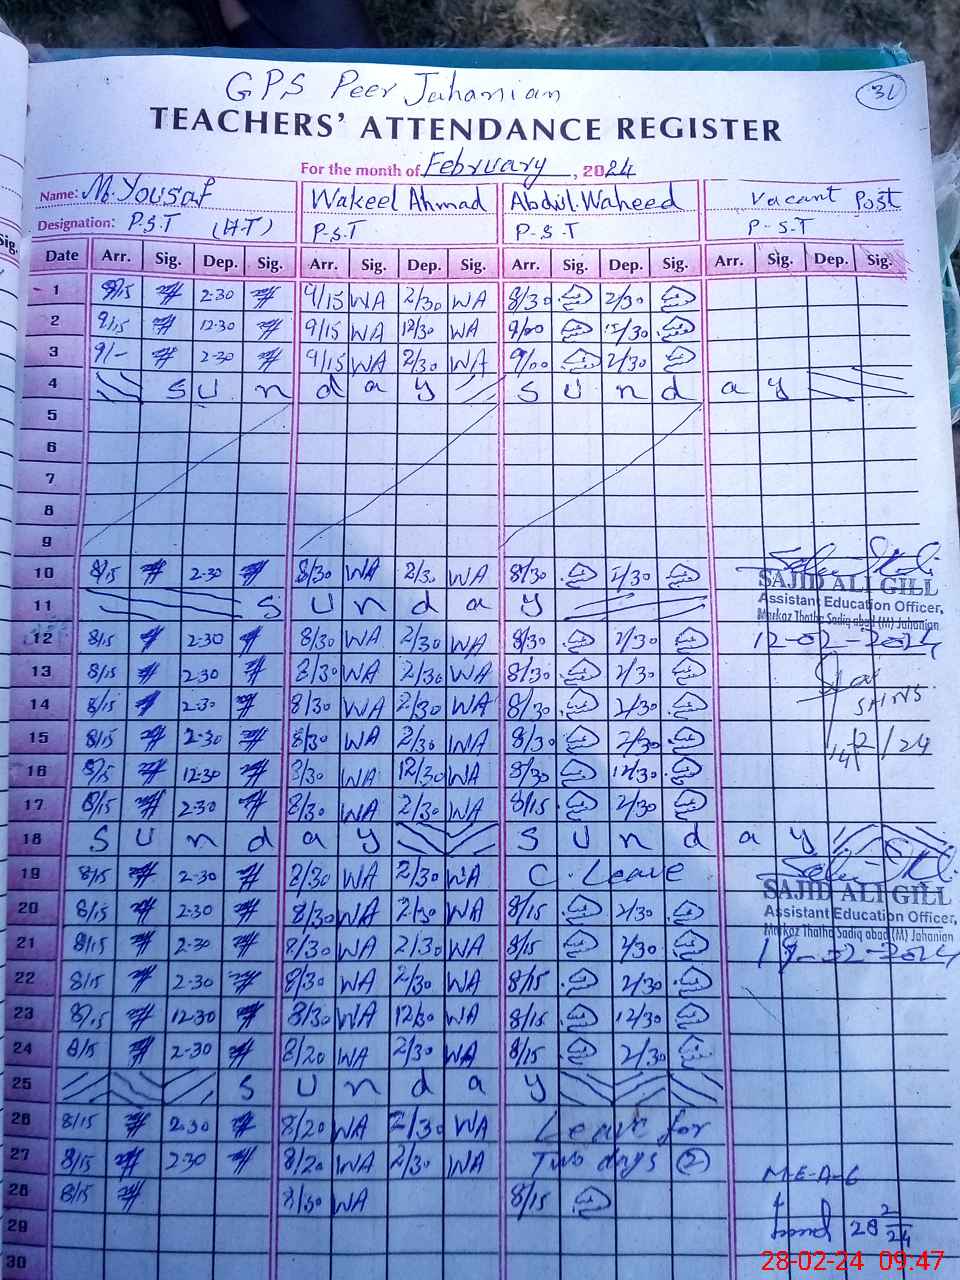 GPS Peer Jahanian
31
TEACHERS' ATTENDANCE REGISTER
For the month of February, 2024
Name: M. Yousaf Wakeel Ahmad Abdul Waheed Vacant Post
Designation: P.S.T (H.T) P-S-T P-S-T P-S-T
Sig.
Date Arr. Sig. Dep. Sig. Arr. Sig. Dep. Sig. Arr. Sig. Dep. Sig. Arr. Sig. Dep. Sig.
1 9/15 2-30 9/15 WA 2/30 WA 8/30 2/30
2 9/15 12-30 9/15 WA 12/30 WA 9/00 12/30
3 9/- 2-30 9/15 WA 2/30 WA 9/00 2/30
4 Sunday Sunday
5
6
7
8
9
10 8/15 2-30 8/30 WA 2/30 WA 8/30 2/30
SAJID ALI GILL
11 Sunday
Assistant Education Officer,
Markaz Thatha Sadiq abad (M) Jahanian
12 8/15 2-30 8/30 WA 2/30 WA 8/30 2/30 12-02-2024
13 8/15 2-30 8/30 WA 2/30 WA 8/30 2/30
14 8/15 2-30 8/30 WA 2/30 WA 8/30 2/30
15 8/15 2-30 8/30 WA 2/30 WA 8/30 2/30 14/2/24
16 8/15 12-30 8/30 WA 12/30 WA 8/30 12/30
17 8/15 2-30 8/30 WA 2/30 WA 8/15 2/30
18 Sunday Sunday
19 8/15 2-30 8/30 WA 2/30 WA C. Leave
SAJID ALI GILL
20 8/15 2-30 8/30 WA 2/30 WA 8/15 2/30
Assistant Education Officer,
Markaz Thatha Sadiq abad (M) Jahanian
21 8/15 2-30 8/30 WA 2/30 WA 8/15 2/30 19-02-2024
22 8/15 2-30 8/30 WA 2/30 WA 8/15 2/30
23 8/15 12-30 8/30 WA 12/30 WA 8/15 12/30
24 8/15 2-30 8/20 WA 2/30 WA 8/15 2/30
25 Sunday
26 8/15 2-30 8/20 WA 2/30 WA Leave for
27 8/15 2-30 8/20 WA 2/30 WA Two days (2)
M-E-A-6
28 8/15 8/30 WA 8/15
29 28 2/24
30
28-02-24 09:47